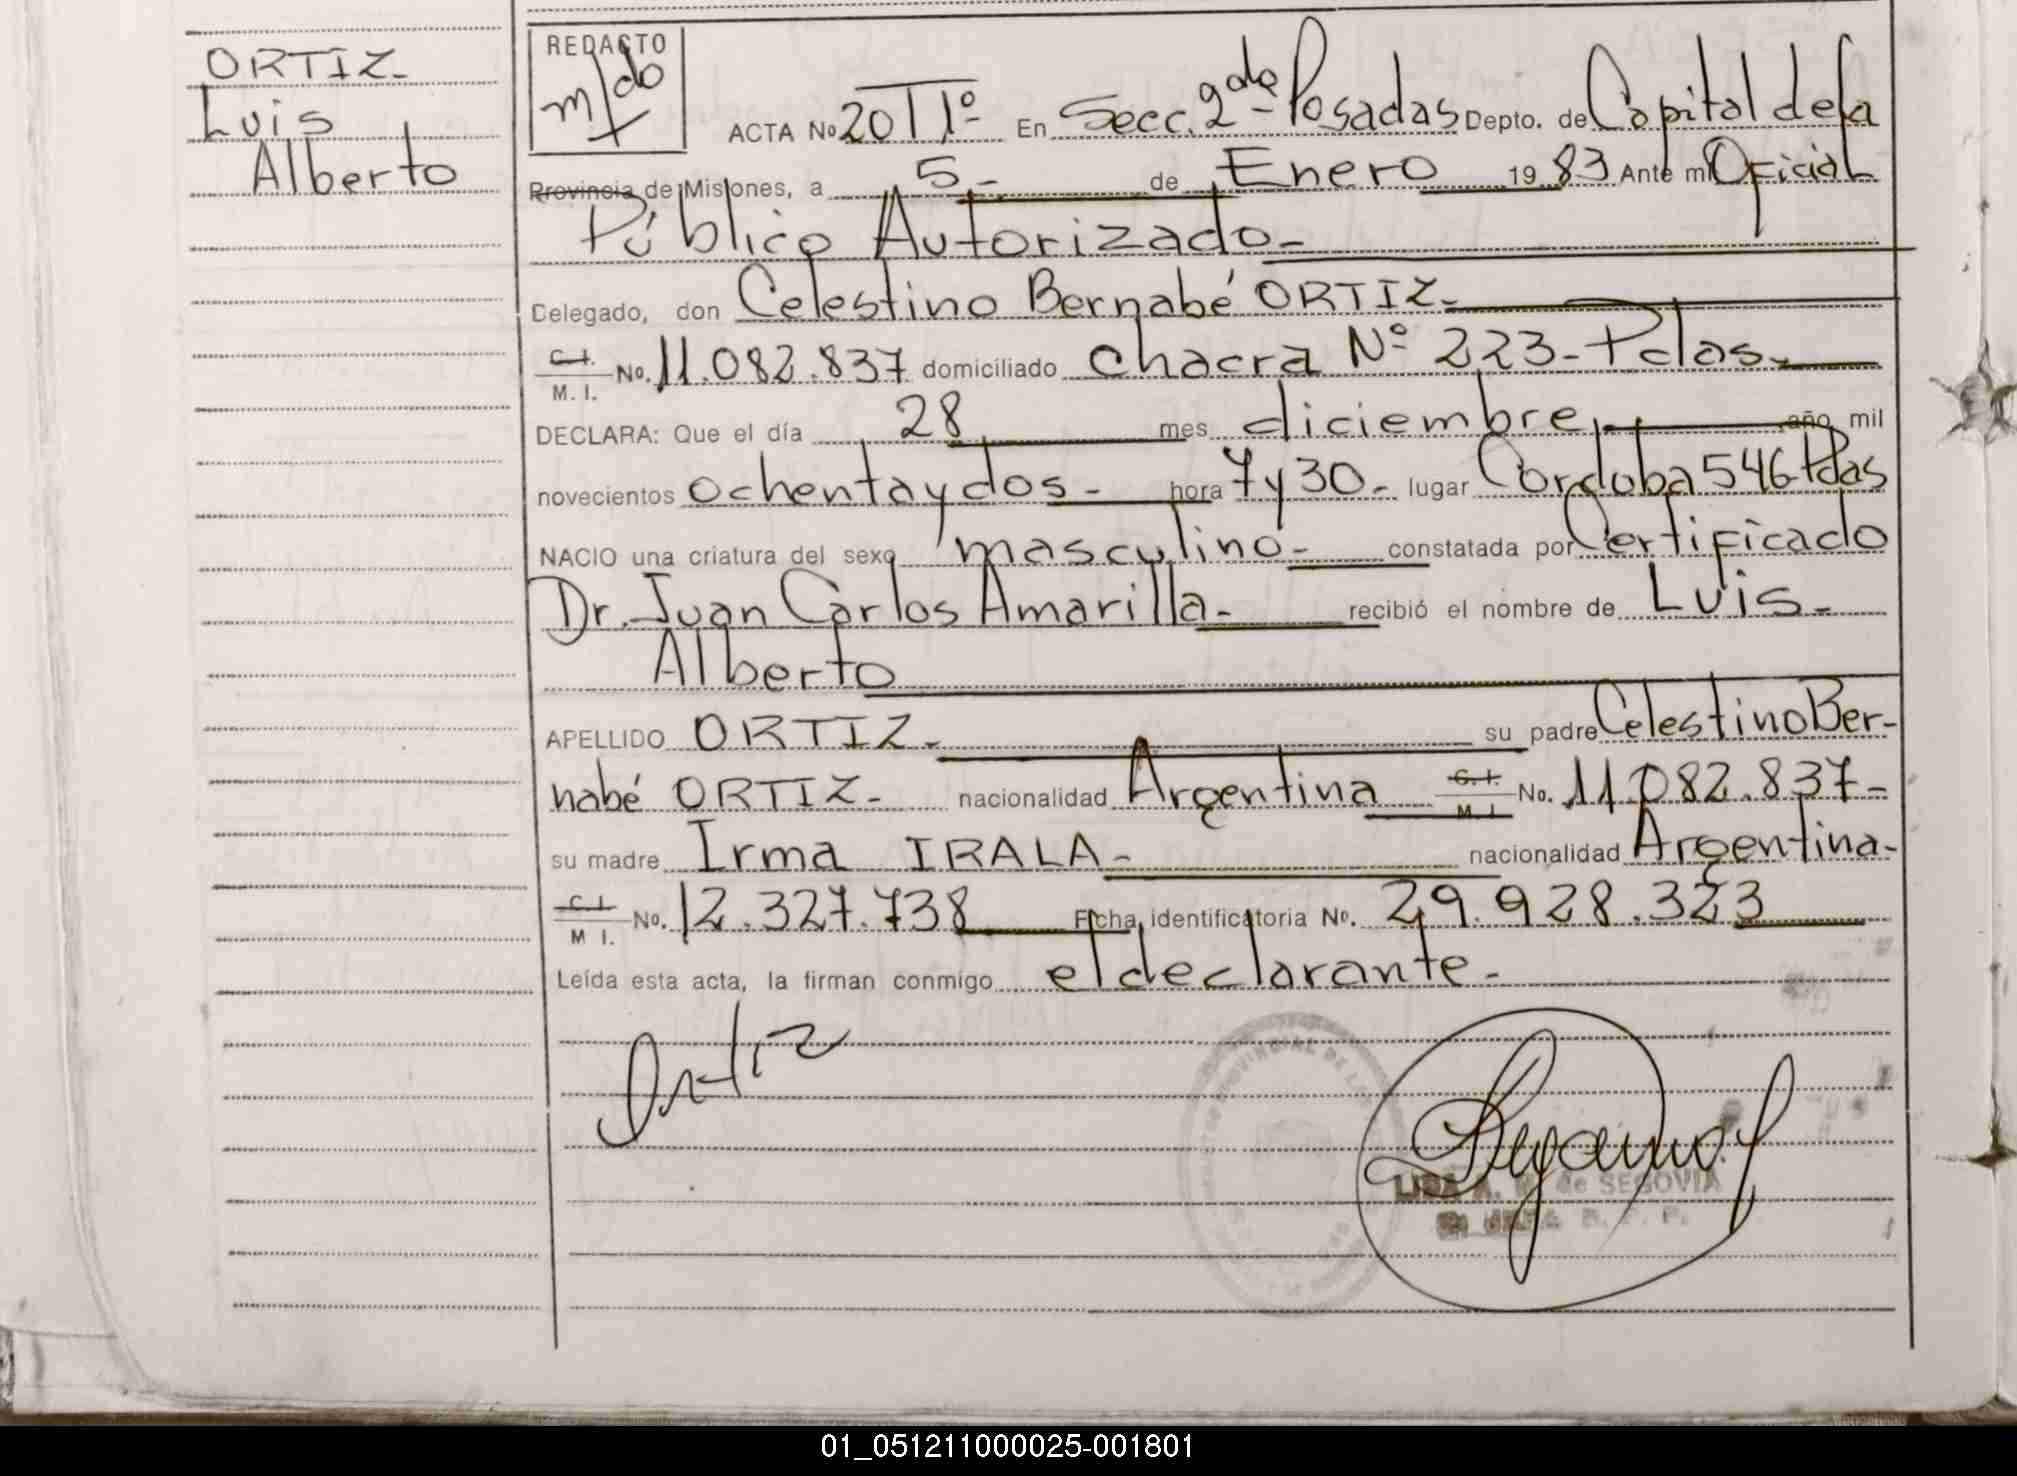 ORTIZ-
Luis
Alberto
REDACTO
m/do
ACTA No 20 T1º- En Secc. 2da- Posadas Depto. de Capital de la
Provincia de Misiones, a 5- de Enero 19 83 Ante mi Oficial
Público Autorizado-
Delegado, don Celestino Bernabé ORTIZ-
C.I.
M. I. No. 11.082.837 domiciliado chacra Nº 223- Pdas-
DECLARA: Que el día 28 mes diciembre, año mil
novecientos ochentay dos- hora 7 y 30- lugar Córdoba 546 Pdas
NACIO una criatura del sexo masculino- constatada por Certificado
Dr. Juan Carlos Amarilla- recibió el nombre de Luis-
Alberto
APELLIDO ORTIZ- su padre Celestino Ber-
nabé ORTIZ- nacionalidad Argentina C.I.
M.I. No. 11.082.837-
su madre Irma IRALA- nacionalidad Argentina-
C.I.
M I. No. 12.327.738 Ficha identificatoria No. 29.928.323
Leída esta acta, la firman conmigo el declarante-
Ortiz
PROVINCIAL DE LAS
de SEGOVIA
JEFA R. P. P.
01_051211000025-001801